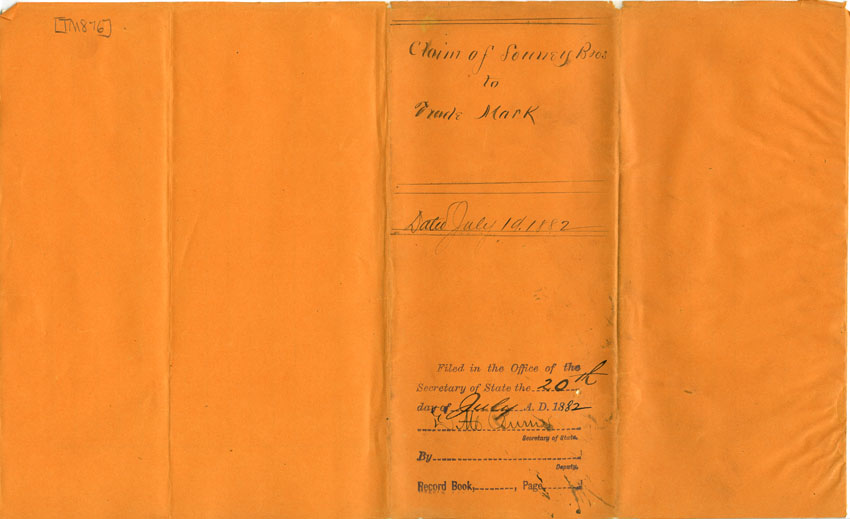 [TM876]
Claim of Souney Bros
to
Trade Mark
Dated July 19. 1882
Filed in the Office of the
Secretary of State the 20th
day of July A. D. 1882
Secretary of State.
By
Deputy.
Record Book, , Page